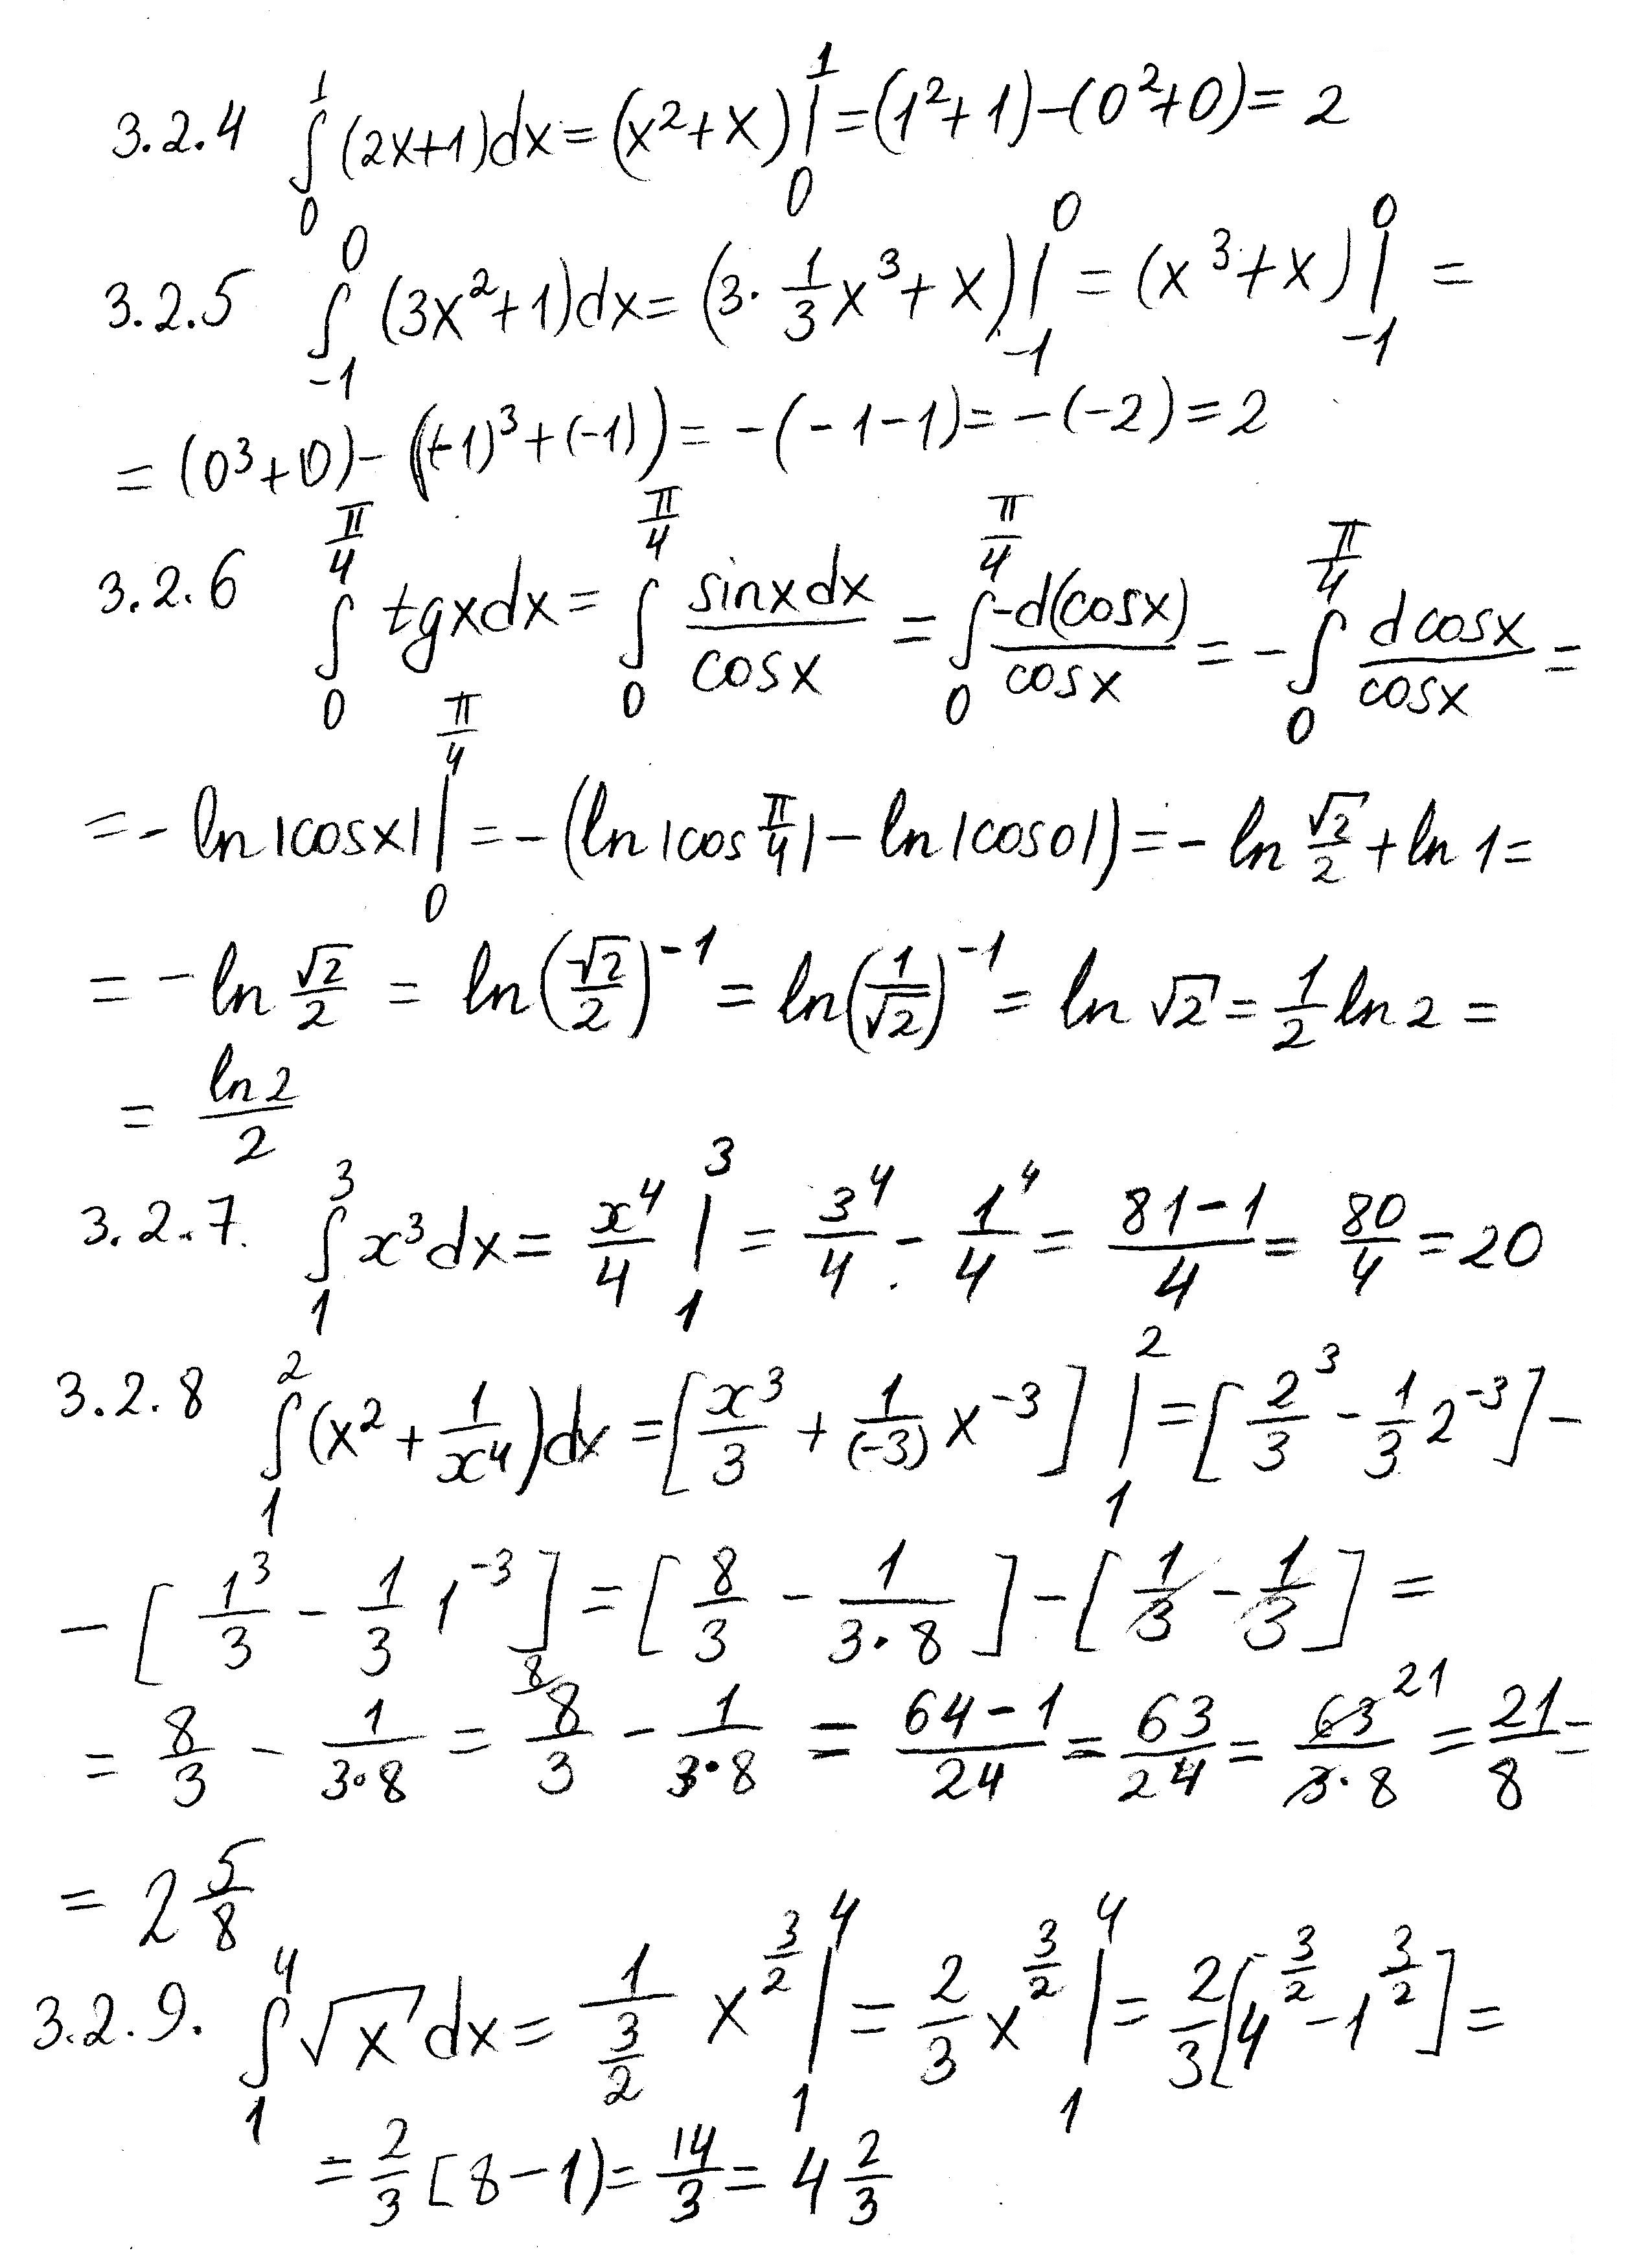 3.2.4 ∫₀¹ (2x+1)dx = (x²+x)|₀¹ = (1²+1)-(0²+0) = 2
3.2.5 ∫₋₁⁰ (3x²+1)dx = (3·1/3x³+x)|₋₁⁰ = (x³+x)|₋₁⁰ =
= (0³+0)-((-1)³+(-1)) = -(-1-1) = -(-2) = 2
3.2.6 ∫₀^(π/4) tgxdx = ∫₀^(π/4) sinxdx/cosx = ∫₀^(π/4) -d(cosx)/cosx = -∫₀^(π/4) dcosx/cosx =
= -ln|cosx||₀^(π/4) = -(ln|cos π/4| - ln|cos0|) = -ln √2/2 + ln1 =
= -ln √2/2 = ln(√2/2)⁻¹ = ln(1/√2)⁻¹ = ln√2 = 1/2 ln2 =
= ln2/2
3.2.7. ∫₁³ x³dx = x⁴/4 |₁³ = 3⁴/4 - 1⁴/4 = (81-1)/4 = 80/4 = 20
3.2.8 ∫₁² (x²+1/x⁴)dx = [x³/3 + 1/(-3) x⁻³]|₁² = [2³/3 - 1/3 2⁻³] -
- [1³/3 - 1/3 1⁻³] = [8/3 - 1/(3·8)] - [1/3 - 1/3] =
= 8/3 - 1/(3·8) = 8/3 ⁸ - 1/(3·8) = (64-1)/24 = 63/24 = 63 ²¹/(3·8) = 21/8 =
= 2 5/8
3.2.9. ∫₁⁴ √x dx = 1/(3/2) x^(3/2)|₁⁴ = 2/3 x^(3/2)|₁⁴ = 2/3[4^(3/2) - 1^(3/2)] =
= 2/3 [8-1) = 14/3 = 4 2/3